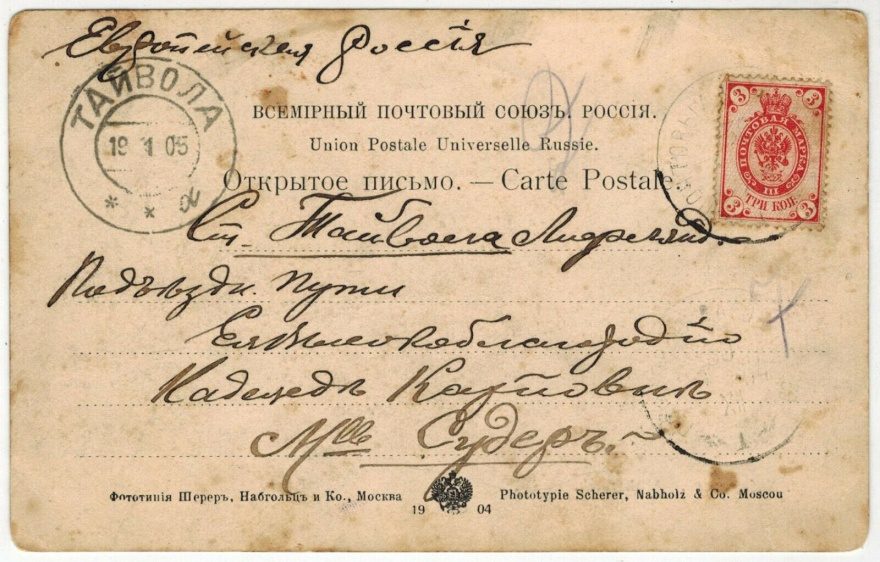 Европейская Россія
ТАЙВОЛА
19 1 05
ВСЕМІРНЫЙ ПОЧТОВЫЙ СОЮЗЪ. РОССІЯ.
Union Postale Universelle Russie.
Открытое письмо. — Carte Postale.
3 3
ПОЧТОВАЯ МАРКА
III
ТРИ КОП.
3 3
Ст. Тайвола
Подъѣздн. Пути
Ея Высокоблагородію
Надеждѣ Карловнѣ
Mlle Судеръ.
Фототипія Шереръ, Набгольцъ и Ко., Москва
19 04
Phototypie Scherer, Nabholz & Co. Moscou